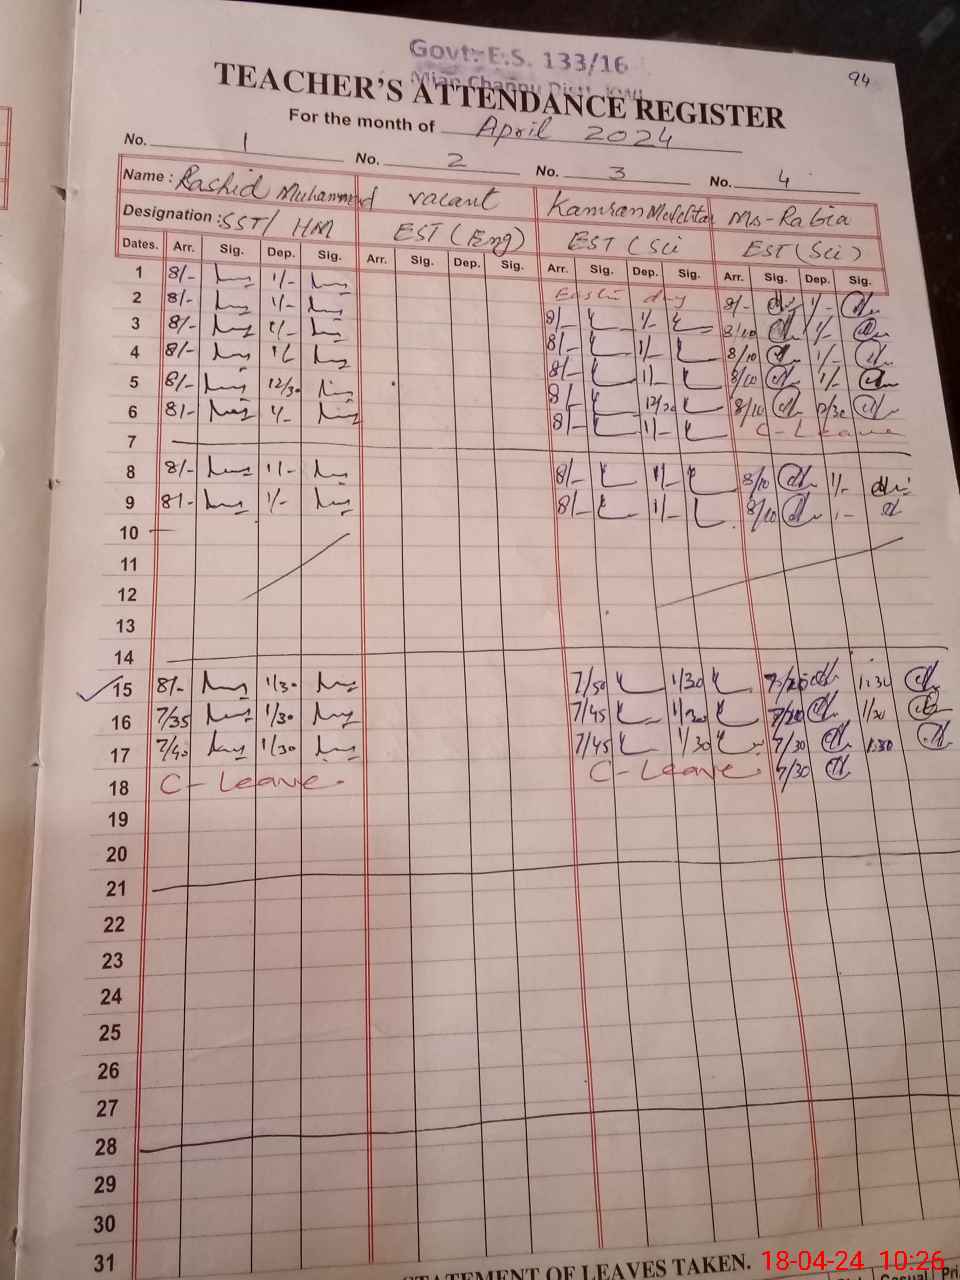 Govt: E.S. 133/16
Mian Channu Distt. KWL
94
TEACHER'S ATTENDANCE REGISTER
For the month of April 2024
No. 1 No. 2 No. 3 No. 4
Name : Rashid Muhammad vacant Kamran Ms-Rabia
Designation : SST/ HM EST (Eng) EST (Sci EST (Sci)
Dates. Arr. Sig. Dep. Sig. Arr. Sig. Dep. Sig. Arr. Sig. Dep. Sig. Arr. Sig. Dep. Sig.
1 8/- 1/- 8/- 1/-
2 8/- 1/- 8/- 1/- 8/10 1/-
3 8/- 1/- 8/- 1/- 8/10 1/-
4 8/- 1/- 8/- 1/- 8/10 1/-
5 8/- 12/30 8/- 12/30 8/10
6 8/- 1/- 8/- 1/- C-Leave
7
8 8/- 1/- 8/- 1/- 8/10 1/-
9 8/- 1/- 8/- 1/- 8/10
10
11
12
13
14
15 8/- 1/30 7/50 1/30 1:30
16 7/35 1/30 7/45 1/30 1/30
17 7/40 1/30 7/45 1/30 7/30 1:30
18 C-Leave. C-Leave 7/30
19
20
21
22
23
24
25
26
27
28
29
30
31
STATEMENT OF LEAVES TAKEN.
18-04-24 10:26